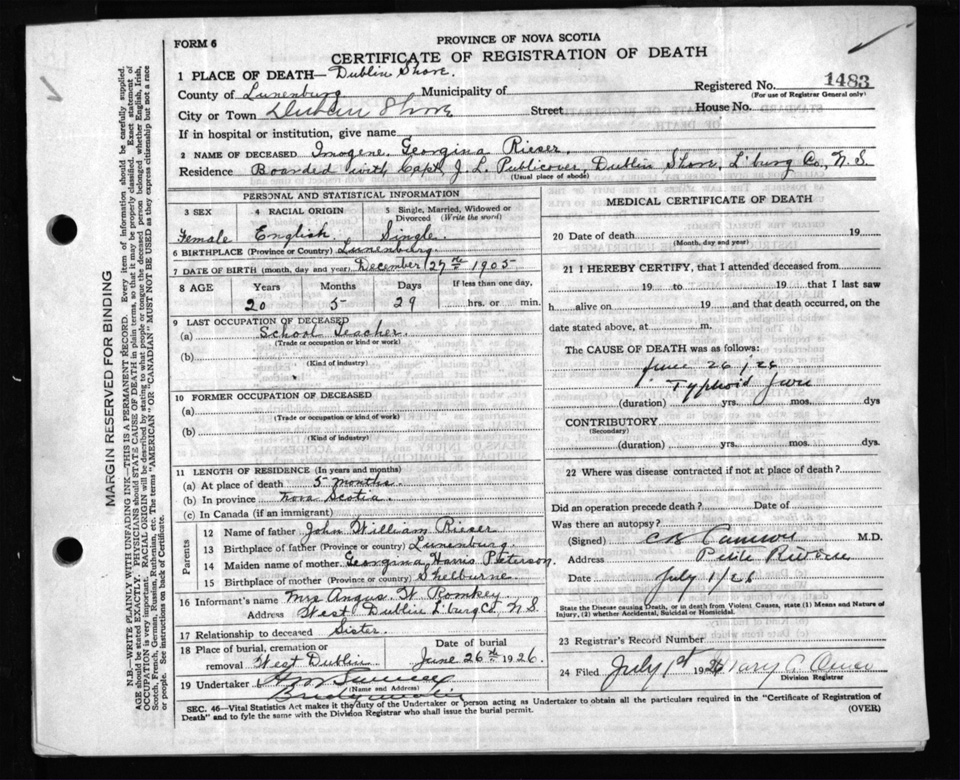 FORM 6
PROVINCE OF NOVA SCOTIA
CERTIFICATE OF REGISTRATION OF DEATH
1 PLACE OF DEATH—Dublin Shore.
Registered No. 1483
(For use of Registrar General only)
County of Lunenburg Municipality of
City or Town Dublin Shore Street House No.
If in hospital or institution, give name
2 NAME OF DECEASED Imogene Georgina Rieser.
Residence Boarded with Capt J. L. Publicover, Dublin Shore, L'burg Co, N. S.
(Usual place of abode)
PERSONAL AND STATISTICAL INFORMATION
3 SEX 4 RACIAL ORIGIN 5 Single, Married, Widowed or Divorced (Write the word)
Female English Single
6 BIRTHPLACE (Province or Country) Lunenburg.
7 DATE OF BIRTH (month, day and year) December 27th 1905
8 AGE Years Months Days If less than one day,
20 5 29 hrs. or min.
9 LAST OCCUPATION OF DECEASED
(a) School Teacher.
(Trade or occupation or kind of work)
(b)
(Kind of industry)
10 FORMER OCCUPATION OF DECEASED
(a)
(Trade or occupation or kind of work)
(b)
(Kind of industry)
11 LENGTH OF RESIDENCE (In years and months)
(a) At place of death 5 months.
(b) In province Nova Scotia
(c) In Canada (if an immigrant)
Parents
12 Name of father John William Rieser
13 Birthplace of father (Province or country) Lunenburg
14 Maiden name of mother Georgina Harris Peterson
15 Birthplace of mother (Province or country) Shelburne.
16 Informant's name Mrs Angus W. Romkey
Address West Dublin L'burg Co, N. S.
17 Relationship to deceased Sister.
18 Place of burial, cremation or removal West Dublin
Date of burial June 26th 1926.
19 Undertaker
(Name and Address)
MEDICAL CERTIFICATE OF DEATH
20 Date of death 19
(Month, day and year)
21 I HEREBY CERTIFY, that I attended deceased from
19 to 19 that I last saw
h alive on 19 and that death occurred, on the
date stated above, at m.
The CAUSE OF DEATH was as follows:
June 26/26
Typhoid
(duration) yrs. mos. dys
CONTRIBUTORY
(Secondary)
(duration) yrs. mos. dys.
22 Where was disease contracted if not at place of death?
Did an operation precede death? Date of
Was there an autopsy?
(Signed) M.D.
Address Petite Riviere
Date July 1/26
State the Disease causing Death, or in death from Violent Causes, state (1) Means and Nature of Injury, (2) whether Accidental, Suicidal or Homicidal.
23 Registrar's Record Number
24 Filed July 1st 1926 Mary
Division Registrar
SEC. 46—Vital Statistics Act makes it the duty of the Undertaker or person acting as Undertaker to obtain all the particulars required in the "Certificate of Registration of Death" and to fyle the same with the Division Registrar who shall issue the burial permit.
(OVER)
MARGIN RESERVED FOR BINDING
N.B.—WRITE PLAINLY WITH UNFADING INK—THIS IS A PERMANENT RECORD. Every item of information should be carefully supplied.
AGE should be stated EXACTLY. PHYSICIANS should STATE CAUSE OF DEATH in plain terms, so that it may be properly classified. Exact statement of
OCCUPATION is very important. RACIAL ORIGIN will be described by stating to what people or tongue the deceased person belonged whether English, Irish,
Scotch, French, German, Russian, Ruthenian, etc. The terms "AMERICAN" OR "CANADIAN" MUST NOT BE USED as they express citizenship but not a race
or people. See instructions on back of Certificate.